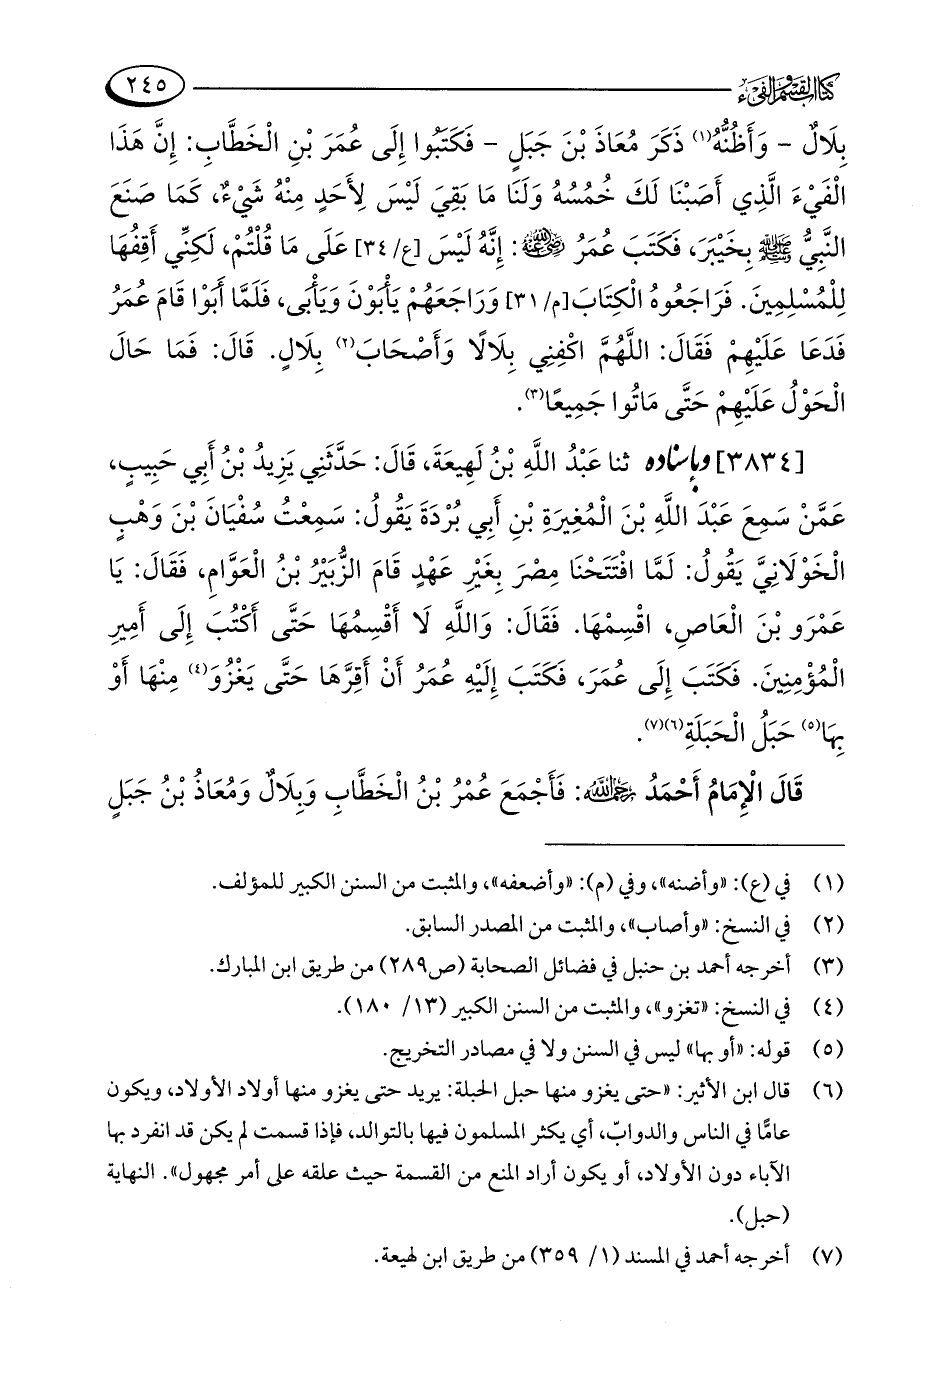 كتاب القسم والفيء ٢٤٥
بِلَالٌ - وَأَظُنُّهُ(١) ذَكَرَ مُعَاذَ بْنَ جَبَلٍ - فَكَتَبُوا إِلَى عُمَرَ بْنِ الْخَطَّابِ: إِنَّ هَذَا
الْفَيْءَ الَّذِي أَصَبْنَا لَكَ خُمُسُهُ وَلَنَا مَا بَقِيَ لَيْسَ لِأَحَدٍ مِنْهُ شَيْءٌ، كَمَا صَنَعَ
النَّبِيُّ ﷺ بِخَيْبَرَ، فَكَتَبَ عُمَرُ رضي الله عنه: إِنَّهُ لَيْسَ [ع/٣٤] عَلَى مَا قُلْتُمْ، لَكِنِّي أَقِفُهَا
لِلْمُسْلِمِينَ. فَرَاجَعُوهُ الْكِتَابَ[م/٣١] وَرَاجَعَهُمْ يَأْبَوْنَ وَيَأْبَى، فَلَمَّا أَبَوْا قَامَ عُمَرُ
فَدَعَا عَلَيْهِمْ فَقَالَ: اللَّهُمَّ اكْفِنِي بِلَالًا وَأَصْحَابَ(٢) بِلَالٍ. قَالَ: فَمَا حَالَ
الْحَوْلُ عَلَيْهِمْ حَتَّى مَاتُوا جَمِيعًا(٣).
[٣٨٣٤] وبإسناده ثنا عَبْدُ اللَّهِ بْنُ لَهِيعَةَ، قَالَ: حَدَّثَنِي يَزِيدُ بْنُ أَبِي حَبِيبٍ،
عَمَّنْ سَمِعَ عَبْدَ اللَّهِ بْنَ الْمُغِيرَةِ بْنِ أَبِي بُرْدَةَ يَقُولُ: سَمِعْتُ سُفْيَانَ بْنَ وَهْبٍ
الْخَوْلَانِيَّ يَقُولُ: لَمَّا افْتَتَحْنَا مِصْرَ بِغَيْرِ عَهْدٍ قَامَ الزُّبَيْرُ بْنُ الْعَوَّامِ، فَقَالَ: يَا
عَمْرَو بْنَ الْعَاصِ، اقْسِمْهَا. فَقَالَ: وَاللَّهِ لَا أَقْسِمُهَا حَتَّى أَكْتُبَ إِلَى أَمِيرِ
الْمُؤْمِنِينَ. فَكَتَبَ إِلَى عُمَرَ، فَكَتَبَ إِلَيْهِ عُمَرُ أَنْ أَقِرَّهَا حَتَّى يَغْزُوَ(٤) مِنْهَا أَوْ
بِهَا(٥) حَبَلُ الْحَبَلَةِ(٦)(٧).
قَالَ الْإِمَامُ أَحْمَدُ رحمه الله: فَأَجْمَعَ عُمْرُ بْنُ الْخَطَّابِ وَبِلَالٌ وَمُعَاذُ بْنُ جَبَلٍ
(١) في (ع): «وأضنه»، وفي (م): «وأضعفه»، والمثبت من السنن الكبير للمؤلف.
(٢) في النسخ: «وأصاب»، والمثبت من المصدر السابق.
(٣) أخرجه أحمد بن حنبل في فضائل الصحابة (ص٢٨٩) من طريق ابن المبارك.
(٤) في النسخ: «تغزو»، والمثبت من السنن الكبير (١٣/ ١٨٠).
(٥) قوله: «أو بها» ليس في السنن ولا في مصادر التخريج.
(٦) قال ابن الأثير: «حتى يغزو منها حبل الحبلة: يريد حتى يغزو منها أولاد الأولاد، ويكون
عامًّا في الناس والدوابّ، أي يكثر المسلمون فيها بالتوالد، فإذا قسمت لم يكن قد انفرد بها
الآباء دون الأولاد، أو يكون أراد المنع من القسمة حيث علقه على أمر مجهول». النهاية
(حبل).
(٧) أخرجه أحمد في المسند (١/ ٣٥٩) من طريق ابن لهيعة.